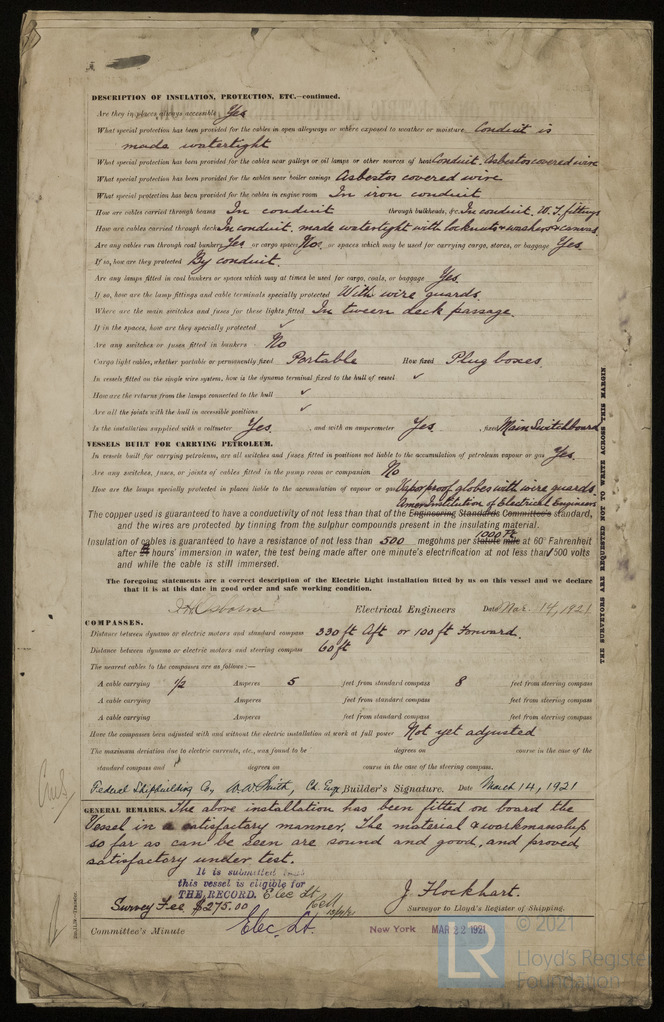 DESCRIPTION OF INSULATION, PROTECTION, ETC.—continued.
Are they in places always accessible Yes
What special protection has been provided for the cables in open alleyways or where exposed to weather or moisture Conduit is
made watertight
What special protection has been provided for the cables near galleys or oil lamps or other sources of heat Conduit. Asbestos covered wire
What special protection has been provided for the cables near boiler casings Asbestos covered wire
What special protection has been provided for the cables in engine room In iron conduit
How are cables carried through beams In conduit through bulkheads, &c. In conduit. W.T. fittings
How are cables carried through decks In conduit. made watertight with locknuts & washers & canvas
Are any cables run through coal bunkers Yes or cargo spaces No. or spaces which may be used for carrying cargo, stores, or baggage Yes.
If so, how are they protected By conduit.
Are any lamps fitted in coal bunkers or spaces which may at times be used for cargo, coals, or baggage Yes.
If so, how are the lamp fittings and cable terminals specially protected With wire guards.
Where are the main switches and fuses for these lights fitted In tween deck passage.
If in the spaces, how are they specially protected ✓
Are any switches or fuses fitted in bunkers No
Cargo light cables, whether portable or permanently fixed Portable How fixed Plug boxes.
In vessels fitted on the single wire system, how is the dynamo terminal fixed to the hull of vessel ✓
How are the returns from the lamps connected to the hull ✓
Are all the joints with the hull in accessible positions ✓
Is the installation supplied with a voltmeter Yes. , and with an amperemeter Yes , fixed Main Switchboard
VESSELS BUILT FOR CARRYING PETROLEUM.
In vessels built for carrying petroleum, are all switches and fuses fitted in positions not liable to the accumulation of petroleum vapour or gas Yes.
Are any switches, fuses, or joints of cables fitted in the pump room or companion No
How are the lamps specially protected in places liable to the accumulation of vapour or gas Vapor proof globes with wire guards.
Amer. Institution of Electrical Engineers
The copper used is guaranteed to have a conductivity of not less than that of the Engineering Standards Committee's standard,
and the wires are protected by tinning from the sulphur compounds present in the insulating material.
1000 Ft.
Insulation of cables is guaranteed to have a resistance of not less than 500 megohms per statute mile at 60° Fahrenheit
after hours' immersion in water, the test being made after one minute's electrification at not less than 1500 volts
and while the cable is still immersed.
The foregoing statements are a correct description of the Electric Light installation fitted by us on this vessel and we declare
that it is at this date in good order and safe working condition.
Electrical Engineers Date Mar. 14, 1921
COMPASSES.
Distance between dynamo or electric motors and standard compass 330 ft Aft or 100 ft Forward.
Distance between dynamo or electric motors and steering compass 60 ft
The nearest cables to the compasses are as follows:—
A cable carrying 1/2 Amperes 5 feet from standard compass 8 feet from steering compass
A cable carrying Amperes feet from standard compass feet from steering compass
A cable carrying Amperes feet from standard compass feet from steering compass
Have the compasses been adjusted with and without the electric installation at work at full power Not yet adjusted
The maximum deviation due to electric currents, etc., was found to be degrees on course in the case of the
standard compass and degrees on course in the case of the steering compass.
Federal Shipbuilding Co. W.W. Smith, Ch. Engr. Builder's Signature. Date March 14, 1921
GENERAL REMARKS. The above installation has been fitted on board the
Vessel in a satisfactory manner. The material & workmanship
so far as can be seen are sound and good, and proved
satisfactory under test.
It is submitted that
this vessel is eligible for
THE RECORD. Elec Lt.
Survey Fee $275.00
J. Flockhart.
Surveyor to Lloyd's Register of Shipping.
Committee's Minute Elec. Lt. New York MAR 22 1921
THE SURVEYORS ARE REQUESTED NOT TO WRITE ACROSS THIS MARGIN
LR
© 2021
Lloyd's Register
Foundation